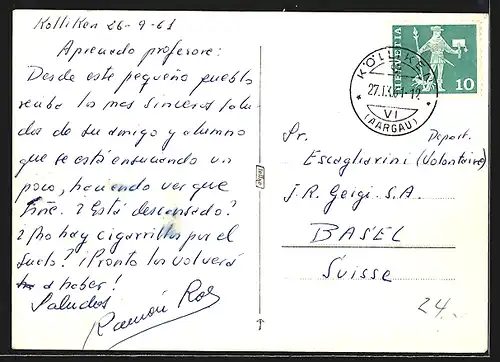 Kolliken 26-9-61
Apreciado profesore:
Desde este pequeño pueblo
reciba los mas sinceros salu-
dos de su amigo y alumno
que se está ensuciando un
poco, haciendo ver que
¿Está descansado?
¿No hay cigarrillos por el
suelo? ¡Pronto los volverá
a haber!
Saludos
Ramón Ros
HELVETIA
10
KÖLLIKEN
27.IX.61-12
VI
(AARGAU)
Sr. Depart.
Escagliarini (Volontaire)
J.R. Geigi S.A.
BASEL
Suisse
24.-